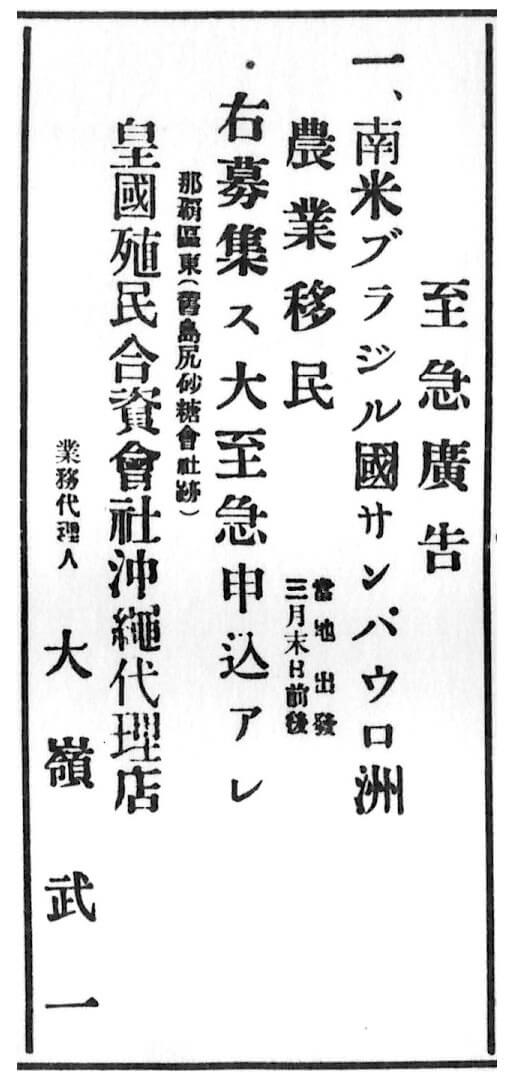 至急廣告
一、南米ブラジル國サンパウロ洲
農業移民
當地出發
三月末日前後
右募集ス大至急申込アレ
那覇區東(舊島尻砂糖會社跡)
皇國殖民合資會社沖繩代理店
業務代理人 大嶺武一